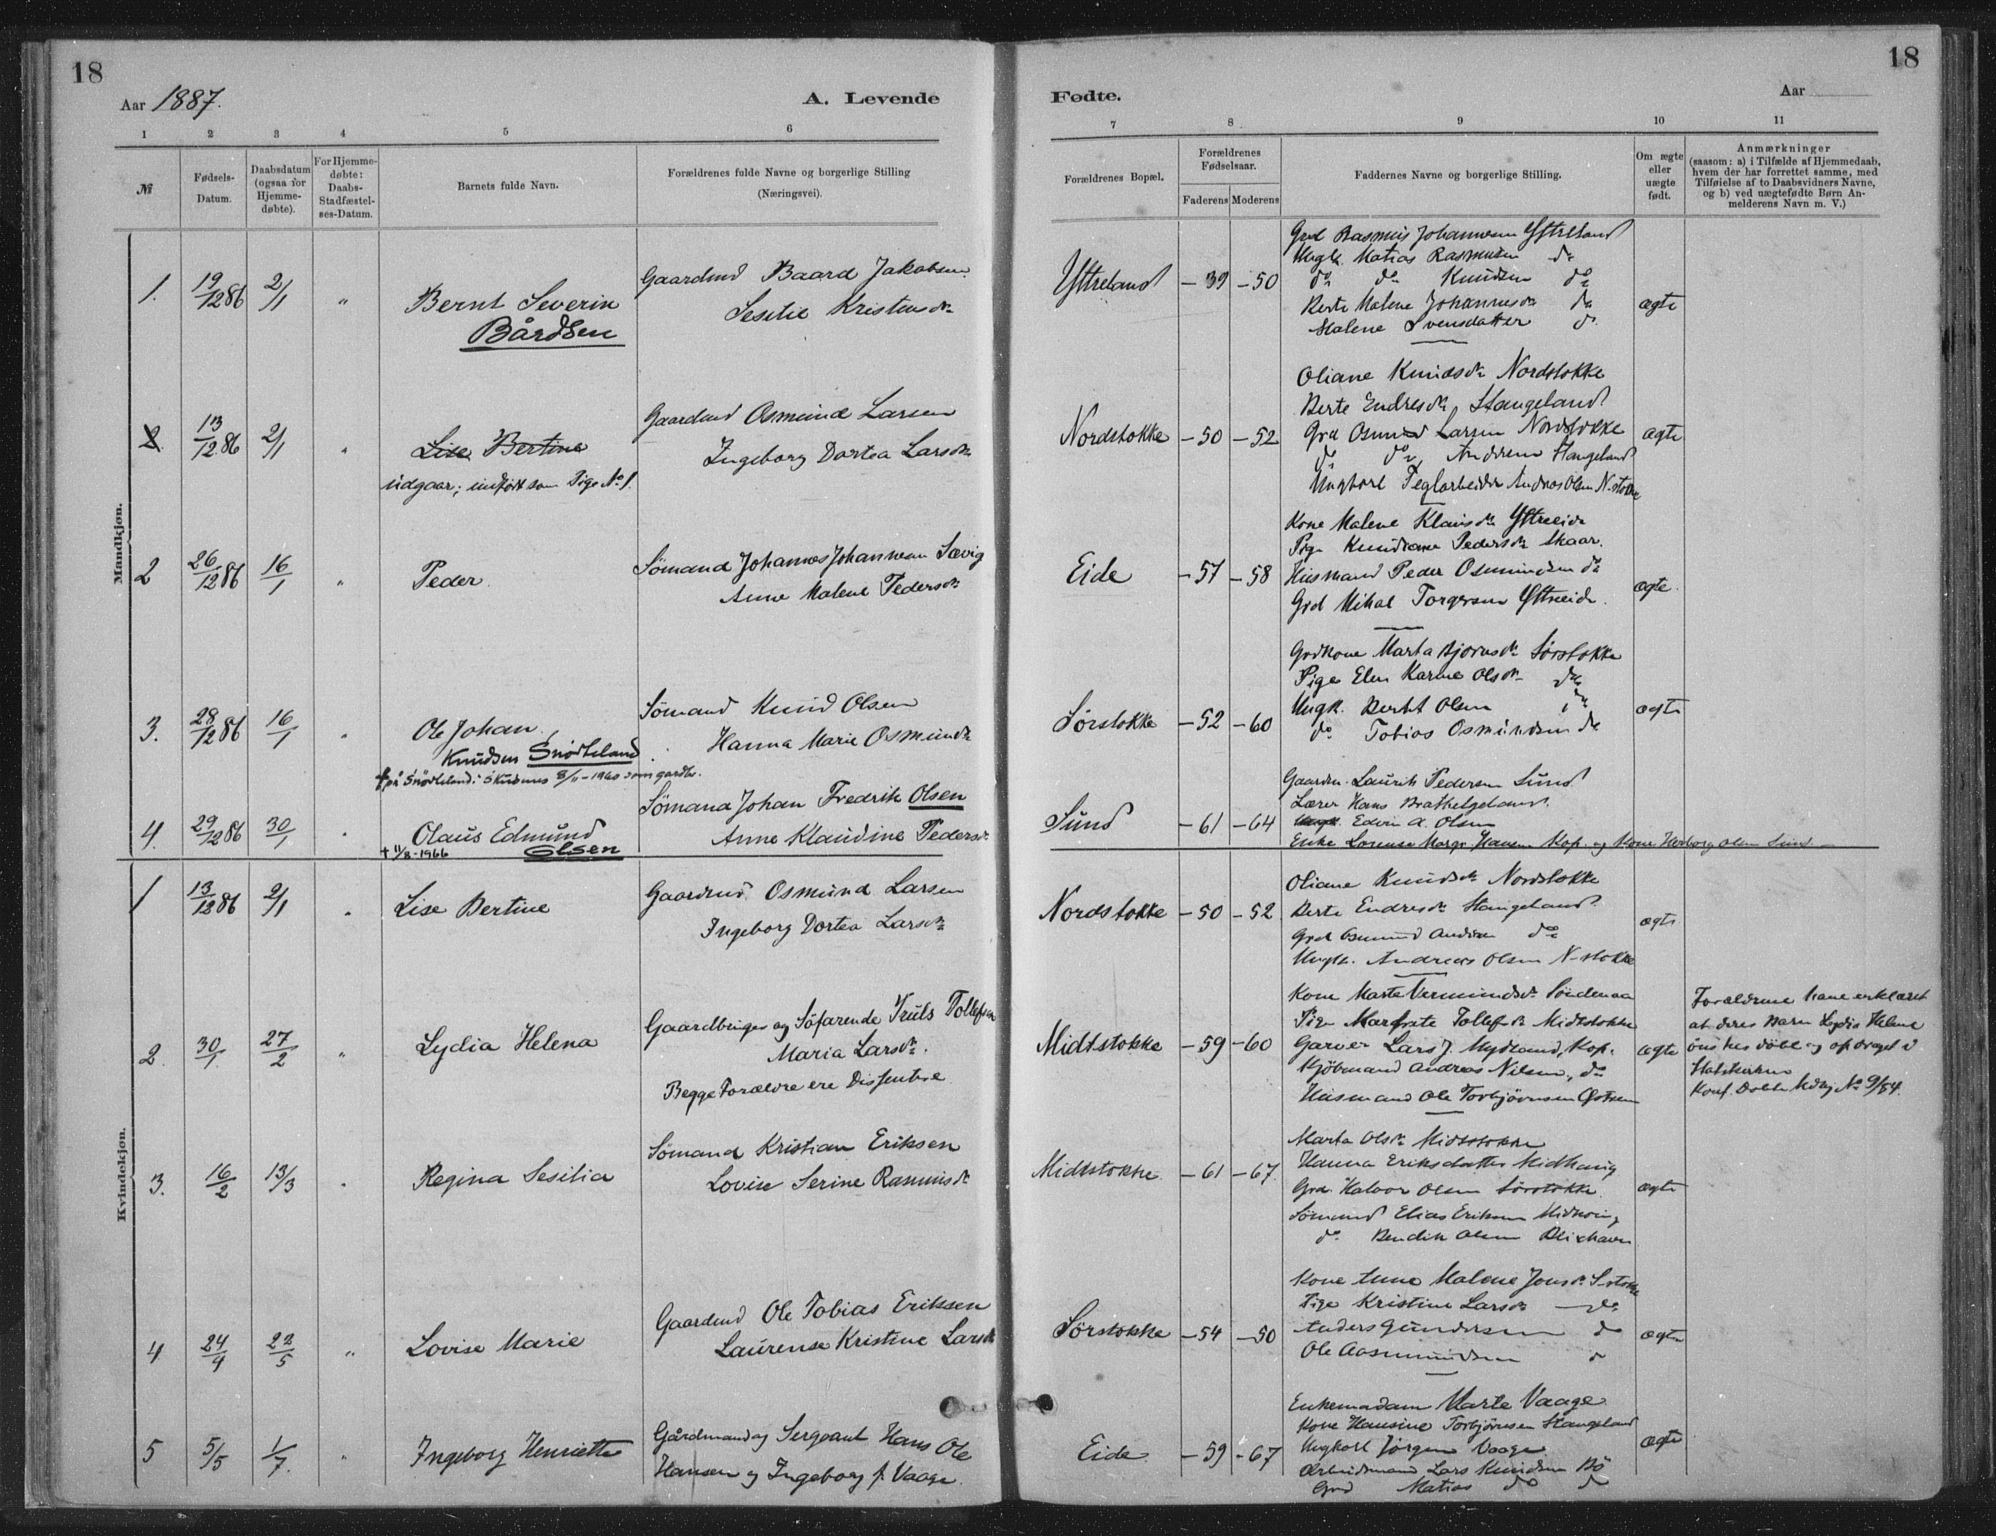 18
18
Aar 1887.
A. Levende
Fødte.
Aar
1 2 3 4 5 6
7 8 9 10 11
№
Fødsels-
Datum.
Daabsdatum
(ogsaa for
Hjemme-
døbte).
For Hjemme-
døbte:
Daabs-
Stadfæstel-
ses-Datum.
Barnets fulde Navn.
Forældrenes fulde Navne og borgerlige Stilling
(Næringsvei).
Forældrenes Bopæl.
Forældrenes
Fødselsaar.
Faderens Moderens
Faddernes Navne og borgerlige Stilling.
Om ægte
eller
uægte
født.
Anmærkninger
(saasom: a) i Tilfælde af Hjemmedaab,
hvem der har forrettet samme, med
Tilføielse af to Daabsvidners Navne,
og b) ved uægtefødte Børn An-
melderens Navn m. V.)
Mandkjøn.
1. 19/12 86 2/1 "
Bernt Severin
Bårdsen
Gaardmd Baard Jakobsen
Sesilie Kristensdr
Ytreland -39 -50
Grd Rasmus Johannesen Ytreland
Ungk. Matias Rasmusen do
do do Knudsen do
Berte Malene Johannesdr do
Malene Svensdatter do
ægte
2 13/12 86 2/1 "
Lise Bertine
udgaar; indført som Pige No 1.
Gaardmd Osmund Larsen
Ingeborg Dortea Larsdr
Nordstokke -50 -52
Oliane Knudsdr Nordstokke
Berte Endresdr Stangeland
Grd Osmund Larsen Nordstokke
do do Andersen Stangeland
Ungkarl Teglarbeider Andreas Olsen N-stokke
ægte
2 26/12 86 16/1 "
Peder
Sömand Johannes Johannesen Sævig
Anne Malene Pedersdr
Eide -57 -58
Kone Malene Klausdr Ytreeide
Pige Knudiane Pedersdr Skaar.
Husmand Peder Osmundsen do
Grd Mikal Torgersen Ytreeide.
ægte
3. 28/12 86 16/1 "
Ole Johan
Knudsen Snörteland
† på Snörteland i Skudenes 8/11-1960 som gardbr.
Sömand Knud Olsen
Hanna Marie Osmundsdr
Sörstokke -52 -60
Grdkone Marta Bjørnsdr Sörstokke
Pige Elen Karine Olsdr do
Ungk. Bertel Olsen do
do Tobias Osmundsen do
ægte
4. 29/12 86 30/1 "
Olaus Edmund
Olsen
† 11/8-1966
Sömand Johan Fredrik Olsen
Anne Klaudine Pedersdr
Sund -61 -64
Gaardm. Laurits Pedersen Sund
Lærer Hans Bratthelgeland
Ungk. Edvin A. Olsen
Enke Lorense Margr Hansen Kop. og Kone Herborg Olsen Sund
Kvindekjøn.
1 13/12 86 2/1 "
Lise Bertine
Gaardmd Osmund Larsen
Ingeborg Dortea Larsdr
Nordstokke -50 -52
Oliane Knudsdr Nordstokke
Berte Endresdr Stangeland
Grd Osmund Anders do
Ungk. Andreas Olsen N-stokke
ægte
2. 30/1 27/2 "
Lydia Helena
Gaardbruger og Söfarende Truls Tollefsen
Maria Larsdr.
Begge Forældre ere Dissentere
Midtstokke -59 -60
Kone Marte Vermundsdr Söndenaa
Pige Margrete Tollefsdr Midtstokke
Garver Lars J. Mydland, Kop.
Kjöbmand Andreas Nilsen, do
Husmand Ole Torbjörnsen Østrem
ægte
Forældrene have erklæret
at deres Barn Lydia Helene
önskes döbt og opdraget i
Statskirken
Konf. Dobbelt Ndg No 9/84.
3. 16/2 13/3 "
Regina Sesilia
Sömand Kristian Eriksen
Lovise Serine Rasmusdr
Midtstokke -61 -67.
Marta Olsdr Midtstokke
Hanna Eriksdatter Midhaug
Grd. Halvor Olsen Sörstokke.
Sömand Elias Eriksen Midhaug
do Bendik Olsen Blikshavn
ægte
4 24/4 22/5 "
Lovise Marie
Gaardmd Ole Tobias Eriksen
Laurense Kristine Larsdr
Sörstokke -54 -50
Kone Anne Malene Jonsdr S-stokke
Pige Kristine Larsdr do
Anders Gundersen do
Ole Aasmundsen do
ægte
5 5/5 1/7. "
Ingeborg Henriette
Gårdmand og Sergeant Hans Ole
Hansen og Ingeborg f. Vaage.
Eide -59 -67
Enkemadam Marte Vaage
Kone Hansine Torbjörnsen Stangeland
Ungkarl Jörgen Vaage
Arbeidsmand Lars Knudsen Bö
Grd Matias do do
ægte